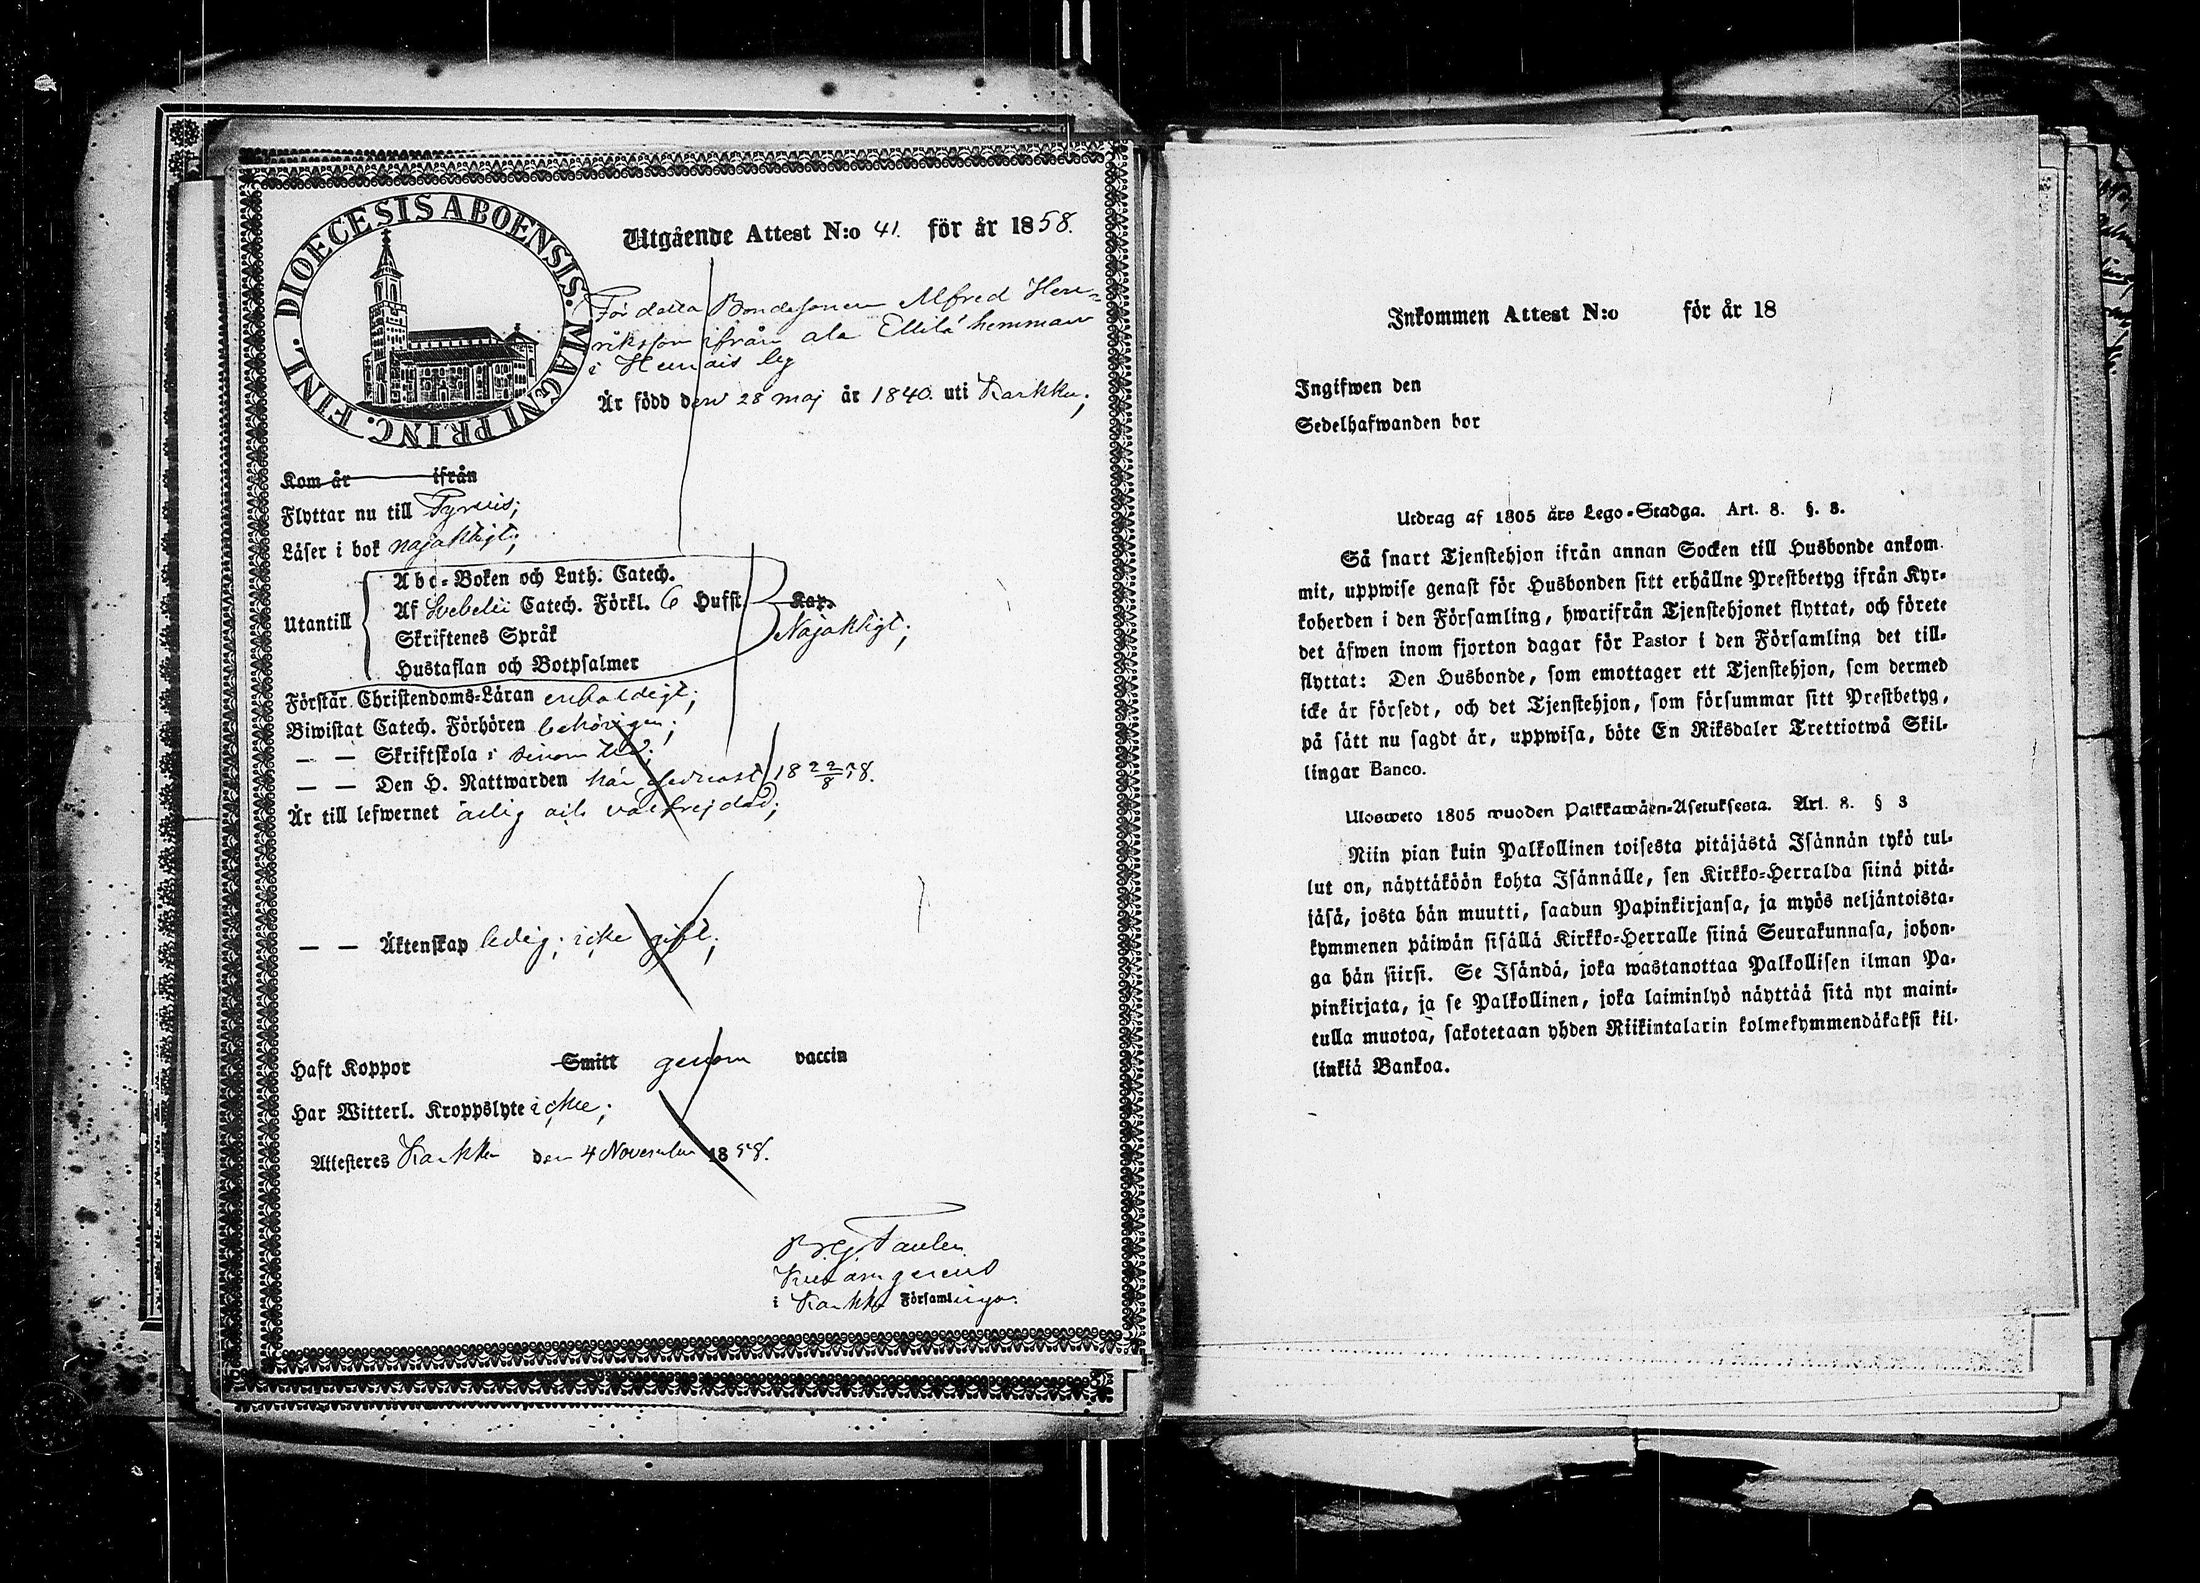 DIOECESIS ABOENSIS. MAGNI PRINC. FINL.
Utgående Attest N:o 41. för år 1858.
Fördetta Bondesonen Alfred Hen-
riksson ifrån ala Ellilä hemman
i Heinois by
Är född den 28 maj år 1840. uti Karkku;
Kom år ifrån
Flyttar nu till Tyrvis;
Läser i bok nöjaktigt;
Utantill
Abc-Boken och Luth. Catech.
Af Svebelii Catech. Förkl. 6 Hufst. Kap.
Skriftenes Språk
Nöjaktigt;
Hustaflan och Botpsalmer
Förstår Christendoms-Läran enfaldigt;
Biwistat Catech. Förhören behörigen;
— — Skriftskola i sinom tid;
— — Den H. Nattwarden här senast 18 22/8 58.
Är till lefwernet ärlig och välfrejdad;
— — Äktenskap ledig; icke gift;
Haft Koppor Smitt genom vaccin
Har Witterl. Kroppslyte icke;
Attesteras Karkku den 4 November 1858.
i Karkku Församlingar.
Inkommen Attest N:o för år 18
Ingifwen den
Sedelhafwanden bor
Utdrag af 1805 års Lego-Stadga. Art. 8. §. 3.
Så snart Tjenstehjon ifrån annan Socken till Husbonde ankom-
mit, uppwise genast för Husbonden sitt erhållne Prestbetyg ifrån Kyr-
koherden i den Församling, hwarifrån Tjenstehjonet flyttat, och förete
det äfwen inom fjorton dagar för Pastor i den Församling det till-
flyttat: Den Husbonde, som emottager ett Tjenstehjon, som dermed
icke är försedt, och det Tjenstehjon, som försummar sitt Prestbetyg,
på sätt nu sagdt är, uppwisa, böte En Riksdaler Trettiotwå Skil-
lingar Banco.
Ulosweto 1805 wuoden Palkkawäen-Asetuksesta. Art. 8. § 3
Niin pian kuin Palkollinen toisesta pitäjästä Isännän tykö tul-
lut on, näyttäköön kohta Isännälle, sen Kirkko-Herralda siinä pitä-
jäsä, josta hän muutti, saadun Papinkirjansa, ja myös neljäntoista-
kymmenen päiwän sisällä Kirkko-Herralle siinä Seurakunnasa, johon-
ga hän siirsi. Se Isändä, joka wastanottaa Palkollisen ilman Pa-
pinkirjata, ja se Palkollinen, joka laiminlyö näyttää sitä nyt maini-
tulla muotoa, sakotetaan yhden Riikintalarin kolmekymmendäkaksi kil-
linkiä Bankoa.